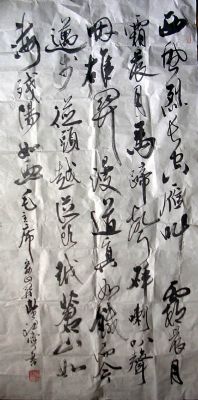 西風烈長空雁叫霜晨月
霜晨月馬蹄聲碎喇叭聲
咽雄關漫道真如鐵而今
邁步從頭越從頭越蒼山如
海殘陽如血毛主席